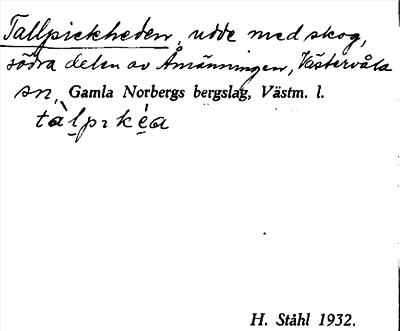 Tallpickheden, udde med skog,
södra delen av Åmänningen, Västervåla
sn, Gamla Norbergs bergslag, Västm. l.
tàlpıkéa
H. Ståhl 1932.